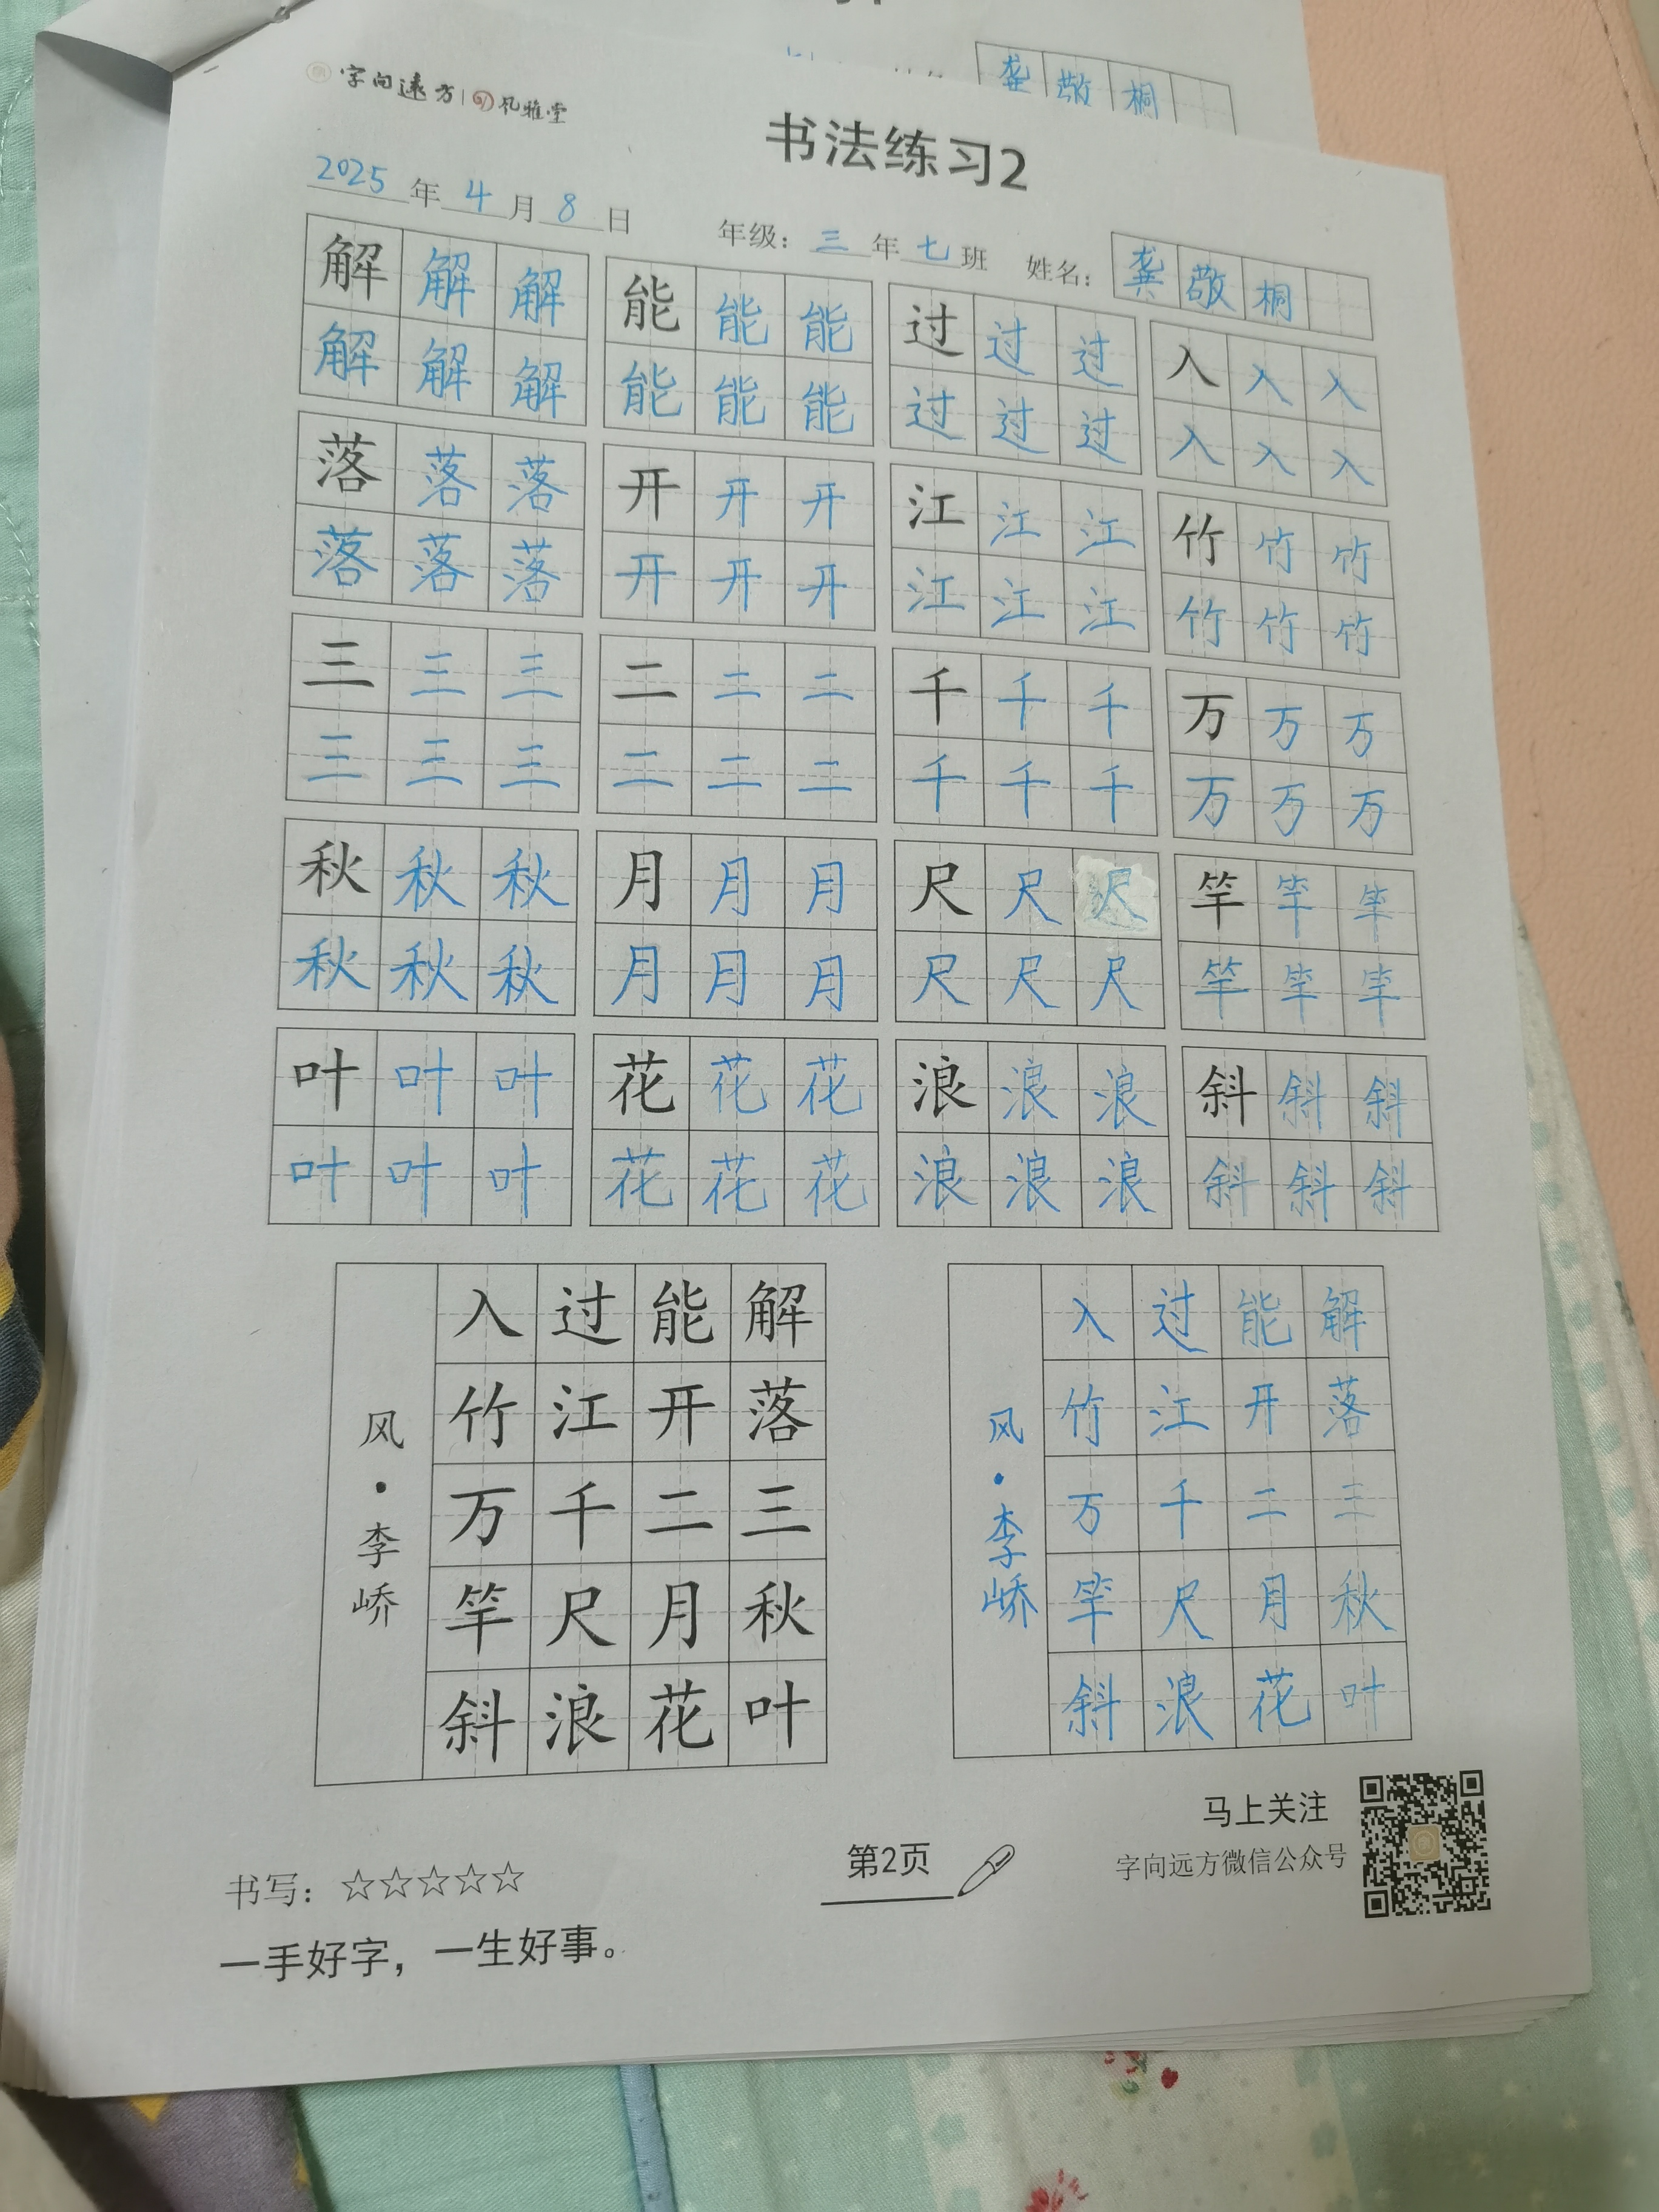 龚 敬 桐
字向远方 | 孔雅堂
书法练习2
2025年4月8日 年级：三年七班 姓名：龚敬桐
解 解 解 能 能 能 过 过 过 入 入 入
解 解 解 能 能 能 过 过 过 入 入 入
落 落 落 开 开 开 江 江 江 竹 竹 竹
落 落 落 开 开 开 江 江 江 竹 竹 竹
三 三 三 二 二 二 千 千 千 万 万 万
三 三 三 二 二 二 千 千 千 万 万 万
秋 秋 秋 月 月 月 尺 尺 尺 竿 竿 竿
秋 秋 秋 月 月 月 尺 尺 尺 竿 竿 竿
叶 叶 叶 花 花 花 浪 浪 浪 斜 斜 斜
叶 叶 叶 花 花 花 浪 浪 浪 斜 斜 斜
解落三秋叶
能开二月花
过江千尺浪
入竹万竿斜
风·李峤
解落三秋叶
能开二月花
过江千尺浪
入竹万竿斜
风·李峤
书写：☆☆☆☆☆
一手好字，一生好事。
第2页
马上关注
字向远方微信公众号